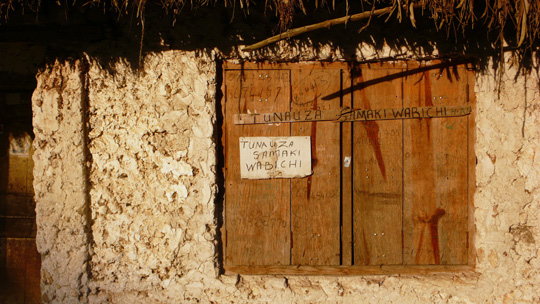 TUNAUZA SAMAKI WABICHI
TUNAUZA
SAMAKI
WABICHI